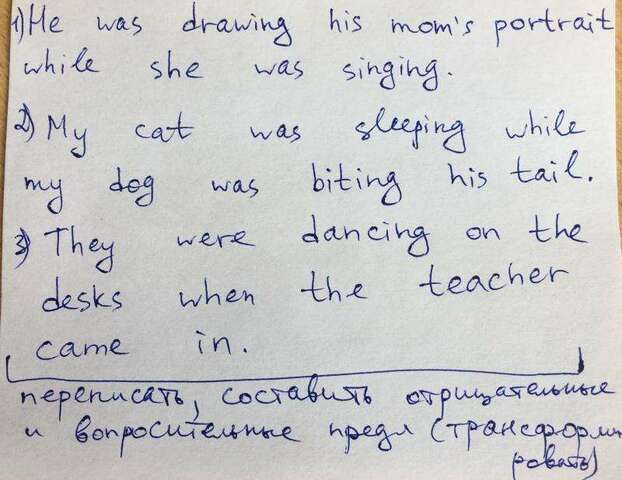 1) He was drawing his mom's portrait
while she was singing.
2) My cat was sleeping while
my dog was biting his tail.
3) They were dancing on the
desks when the teacher
came in.
переписать, составить отрицательные
и вопросительные предл (трансформи
ровать)